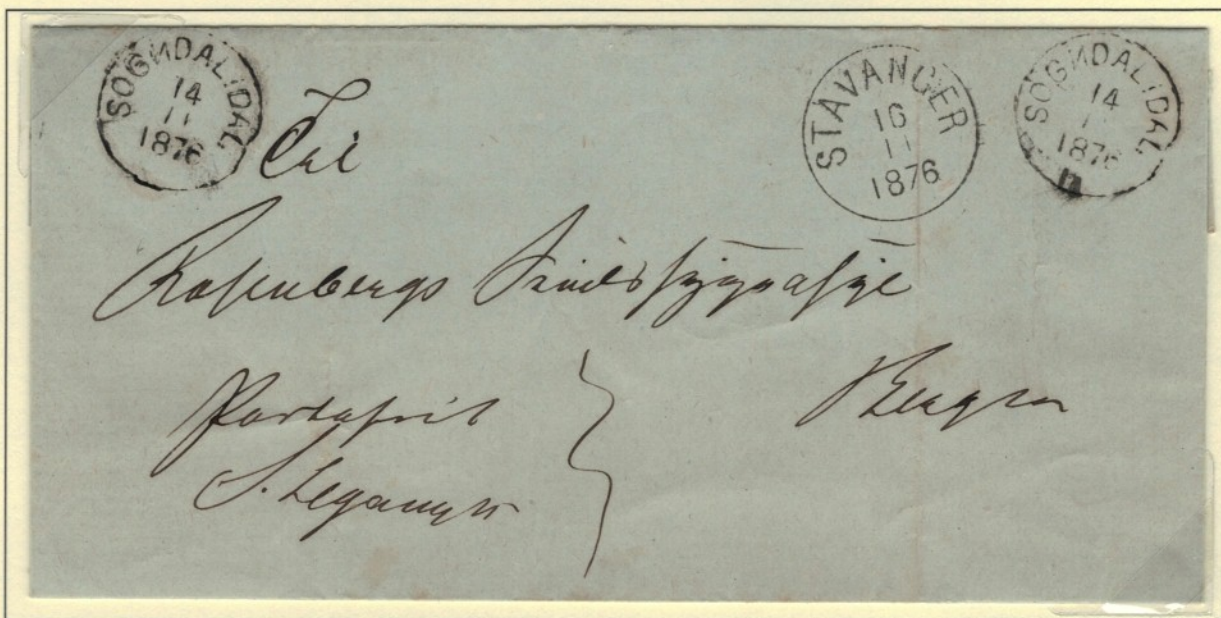 SOGNDAL I DAL.
14
11
1876
STAVANGER
16
11
1876
SOGNDAL I DAL.
14
1876
Til
Rosenbergs Sindssygeasyl
Bergen
Portofrit